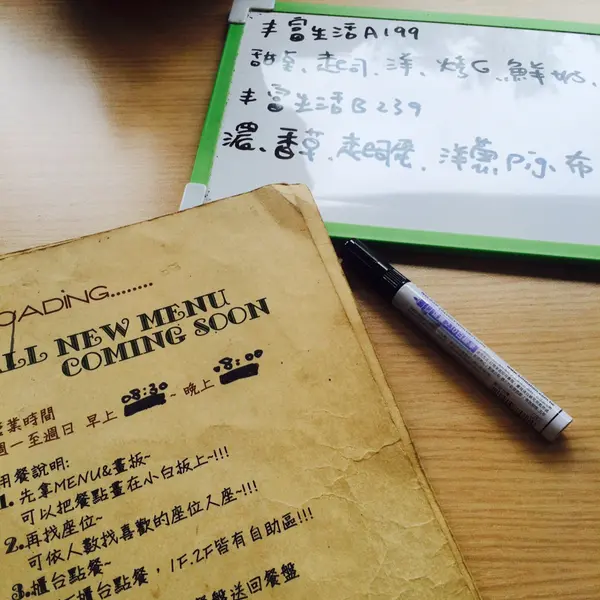 丰富生活A199
甜莖、起司、洋、烤G、鮮奶、
丰富生活B 239
濃、香草、起司蛋、洋蔥、Pig、布
OADING........
ALL NEW MENU
COMING SOON
營業時間
週一至週日 早上 08:30 ~ 晚上 08:00
用餐說明:
1. 先拿MENU&畫板~
可以把餐點畫在小白板上~!!!
2. 再找座位~
可依人數找喜歡的座位入座~!!!
3. 櫃台點餐~
櫃台點餐，1F.2F皆有自助區!!!
餐盤送回餐盤